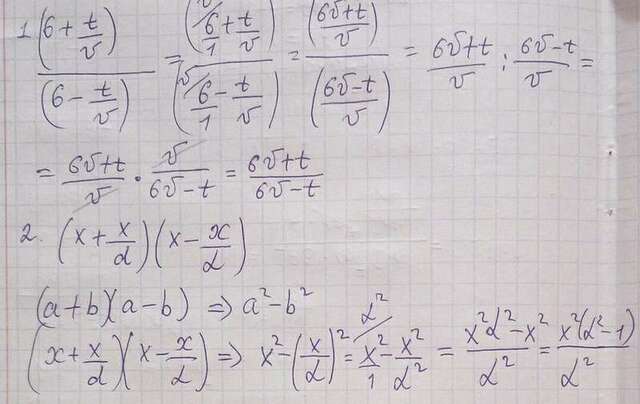 1. (6 + t/v) / (6 − t/v) = (6/1 + t/v) / (6/1 − t/v) = ((6v+t)/v) / ((6v−t)/v) = (6v+t)/v : (6v−t)/v =
= (6v+t)/v · v/(6v−t) = (6v+t)/(6v−t)
2. (x + x/d)(x − x/d)
(a+b)(a−b) ⇒ a²−b²
(x + x/d)(x − x/d) ⇒ x² − (x/d)² = d² x²/1 − x²/d² = (x²d² − x²)/d² = x²(d²−1)/d²